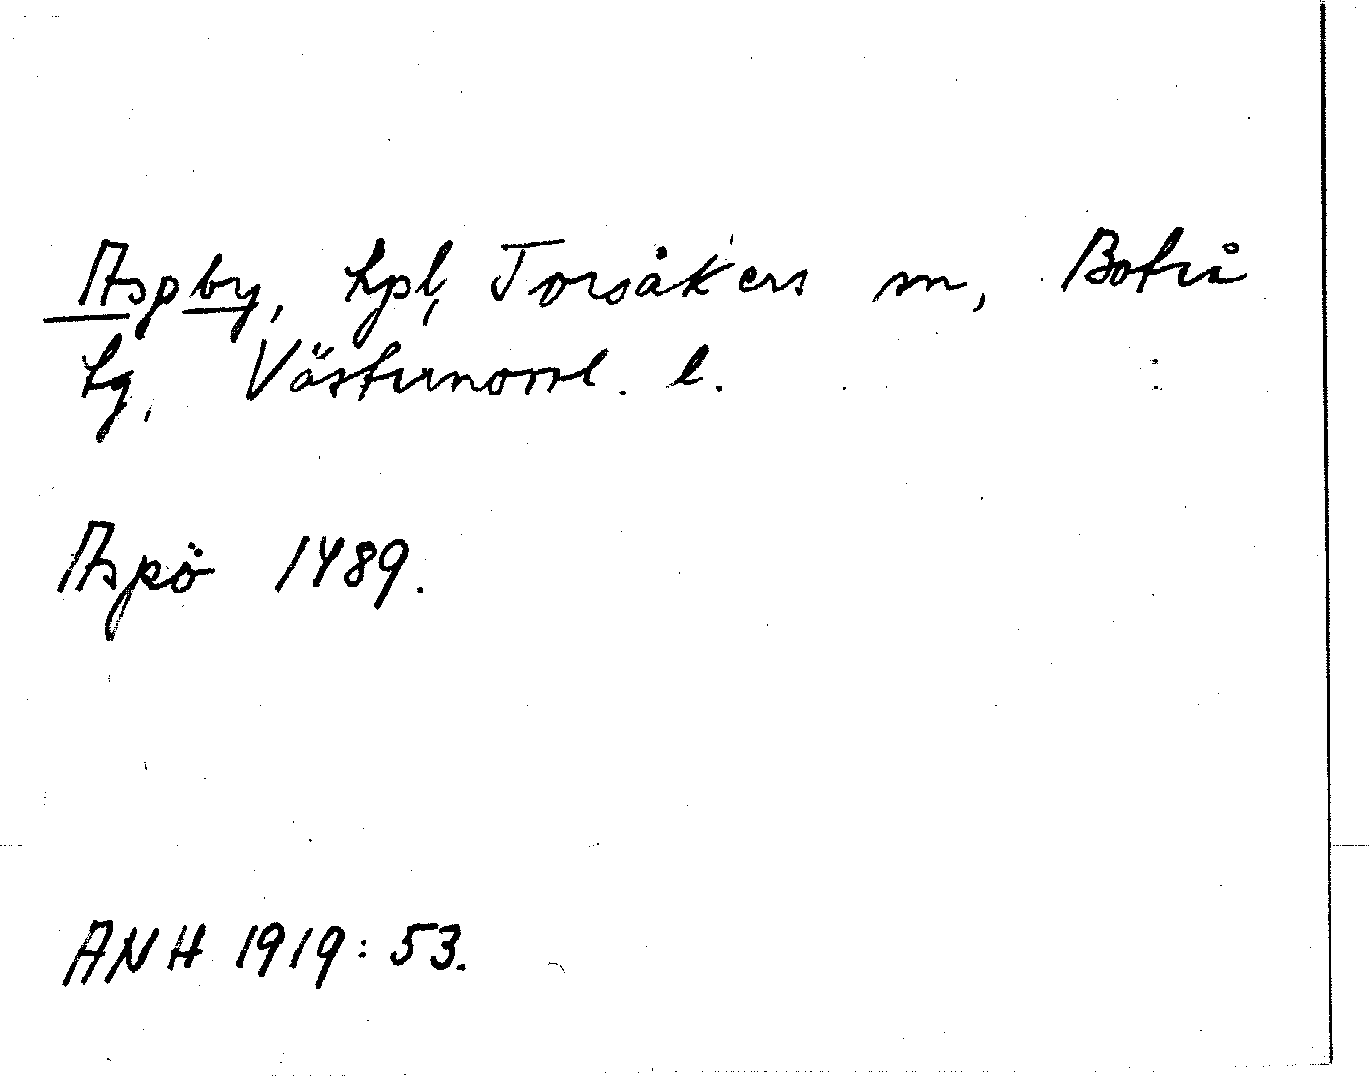 Aspby, tpl, Torsåkers sn, Boteå
tg, Västernorrl. l.
Aspö 1489.
ANH 1919:53.